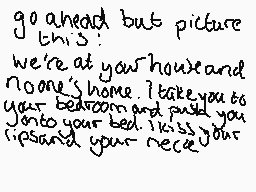 go ahead but picture
this:
we're at your house and
no one's home. I take you to
your bedroom and push you
onto your bed. I kiss your
lips and your necce